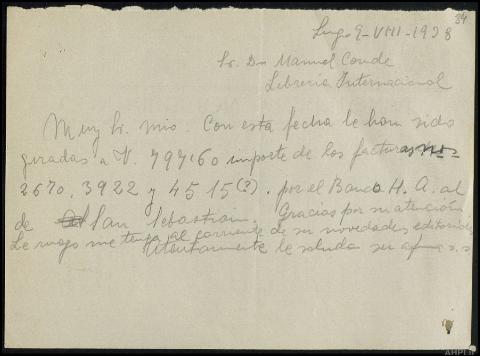 34
Lugo 9-VIII-1938
Sr. Dn Manuel Conde
Librería Internacional
Muy Sr. mío. Con esta fecha le han sido
giradas a V. 797'60 importe de las facturas nos
2670, 3922 y 4515(?). por el Banco H. A. al
de San Sebastian. Gracias por su atención
Le ruego me tenga al corriente de su novedades editoriales
Atentamente le saluda su s.s.
AHPLU